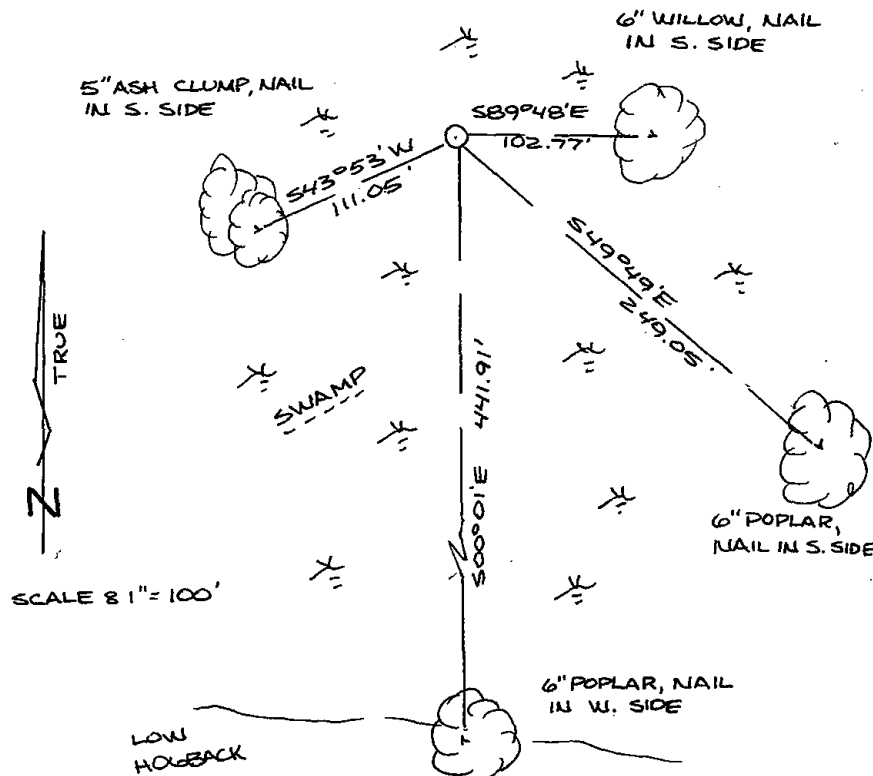 6" WILLOW, NAIL
IN S. SIDE
5" ASH CLUMP, NAIL
IN S. SIDE
S89°48'E
102.77'
S43°53'W
111.05'
S49°49'E
249.05'
TRUE
N
441.91'
S00°01'E
SWAMP
6" POPLAR,
NAIL IN S. SIDE
SCALE 8 1"=100'
6" POPLAR, NAIL
IN W. SIDE
LOW
HOGBACK